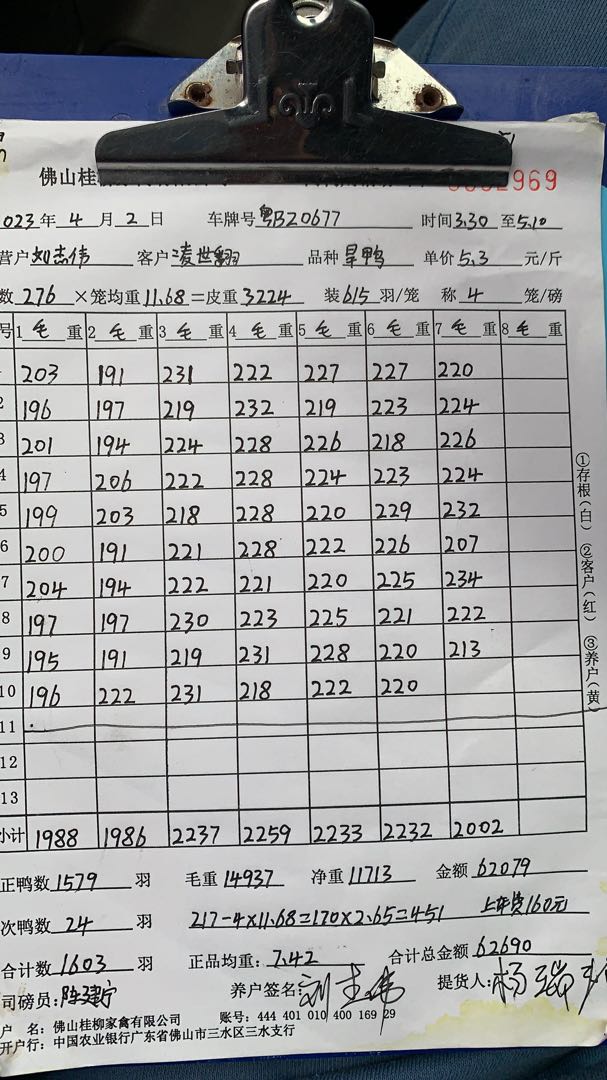 佛山桂 2969
023年4月2日 车牌号粤BZ0677 时间3.30至5.10
营户刘志伟 客户凌世翻 品种旱鸭 单价5.3元/斤
数276×笼均重11.68=皮重3224 装615羽/笼 称4笼/磅
号 1毛重 2毛重 3毛重 4毛重 5毛重 6毛重 7毛重 8毛重
203 191 231 222 227 227 220
2 196 197 219 232 219 223 224
3 201 194 224 228 226 218 226
4 197 206 222 228 224 223 224
5 199 203 218 228 220 229 232
6 200 191 221 228 222 226 207
7 204 194 222 221 220 225 234
8 197 197 230 223 225 221 222
9 195 191 219 231 228 220 213
10 196 222 231 218 222 220
11
12
13
小计 1988 1986 2237 2259 2233 2232 2002
①存根(白) ②客户(红) ③养户(黄)
正鸭数1579羽 毛重14937 净重11713 金额62079
次鸭数24羽 217-4×11.68=170×2.65=451 上车费160元
合计数1603羽 正品均重:7.42 合计总金额62690
司磅员:陈建宁 养户签名:刘志伟 提货人:杨瑞
户 名:佛山桂柳家禽有限公司 账号:444 401 010 400 169 29
开户行:中国农业银行广东省佛山市三水区三水支行